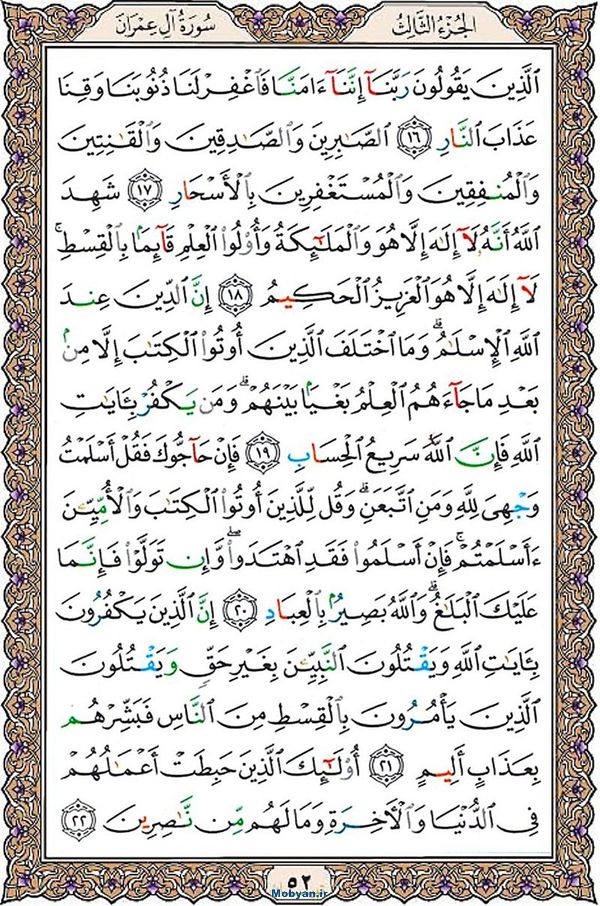 الجُزءُ الثَّالِثُ سُورَةُ آلِ عِمْرَانَ
ٱلَّذِينَ يَقُولُونَ رَبَّنَآ إِنَّنَآ ءَامَنَّا فَٱغْفِرْ لَنَا ذُنُوبَنَا وَقِنَا
عَذَابَ ٱلنَّارِ ١٦ ٱلصَّٰبِرِينَ وَٱلصَّٰدِقِينَ وَٱلْقَٰنِتِينَ
وَٱلْمُنفِقِينَ وَٱلْمُسْتَغْفِرِينَ بِٱلْأَسْحَارِ ١٧ شَهِدَ
ٱللَّهُ أَنَّهُۥ لَآ إِلَٰهَ إِلَّا هُوَ وَٱلْمَلَٰٓئِكَةُ وَأُو۟لُوا۟ ٱلْعِلْمِ قَآئِمًۢا بِٱلْقِسْطِ ۚ
لَآ إِلَٰهَ إِلَّا هُوَ ٱلْعَزِيزُ ٱلْحَكِيمُ ١٨ إِنَّ ٱلدِّينَ عِندَ
ٱللَّهِ ٱلْإِسْلَٰمُ ۗ وَمَا ٱخْتَلَفَ ٱلَّذِينَ أُوتُوا۟ ٱلْكِتَٰبَ إِلَّا مِنۢ
بَعْدِ مَا جَآءَهُمُ ٱلْعِلْمُ بَغْيًۢا بَيْنَهُمْ ۗ وَمَن يَكْفُرْ بِـَٔايَٰتِ
ٱللَّهِ فَإِنَّ ٱللَّهَ سَرِيعُ ٱلْحِسَابِ ١٩ فَإِنْ حَآجُّوكَ فَقُلْ أَسْلَمْتُ
وَجْهِىَ لِلَّهِ وَمَنِ ٱتَّبَعَنِ ۗ وَقُل لِّلَّذِينَ أُوتُوا۟ ٱلْكِتَٰبَ وَٱلْأُمِّيِّـۧنَ
ءَأَسْلَمْتُمْ ۚ فَإِنْ أَسْلَمُوا۟ فَقَدِ ٱهْتَدَوا۟ ۖ وَّإِن تَوَلَّوْا۟ فَإِنَّمَا
عَلَيْكَ ٱلْبَلَٰغُ ۗ وَٱللَّهُ بَصِيرٌۢ بِٱلْعِبَادِ ٢٠ إِنَّ ٱلَّذِينَ يَكْفُرُونَ
بِـَٔايَٰتِ ٱللَّهِ وَيَقْتُلُونَ ٱلنَّبِيِّـۧنَ بِغَيْرِ حَقٍّ وَيَقْتُلُونَ
ٱلَّذِينَ يَأْمُرُونَ بِٱلْقِسْطِ مِنَ ٱلنَّاسِ فَبَشِّرْهُم
بِعَذَابٍ أَلِيمٍ ٢١ أُو۟لَٰٓئِكَ ٱلَّذِينَ حَبِطَتْ أَعْمَٰلُهُمْ
فِى ٱلدُّنْيَا وَٱلْءَاخِرَةِ وَمَا لَهُم مِّن نَّٰصِرِينَ ٢٢
٥٢
Mobyan.ir